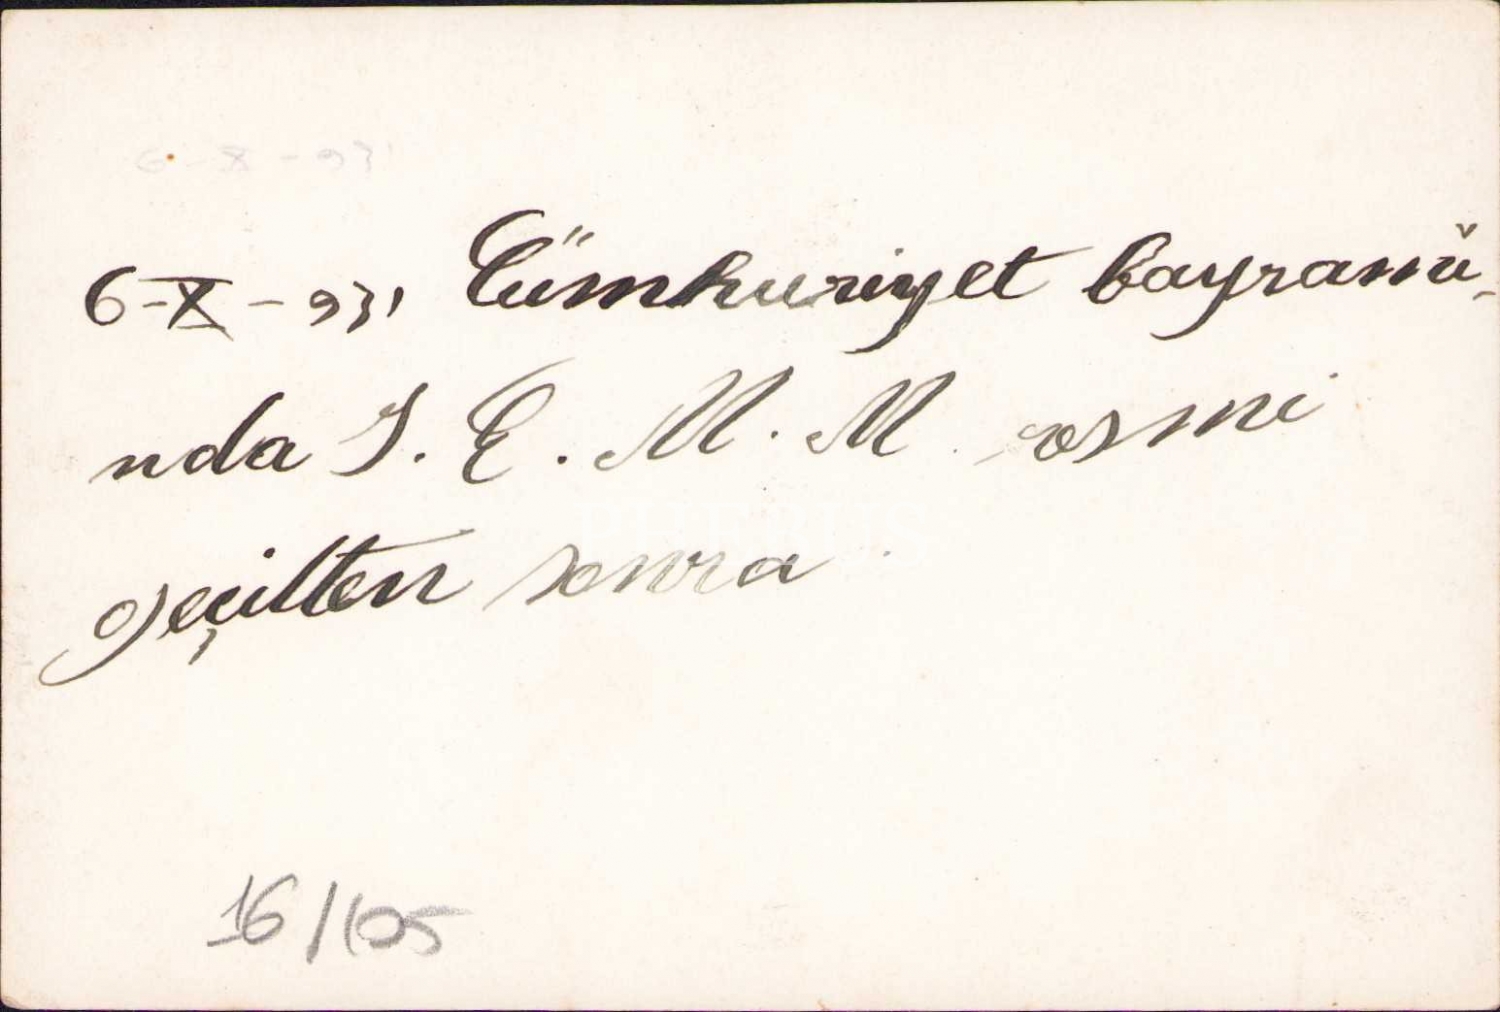 6-X-93
6-X-931 Cümhuriyet bayramı-
nda İ. E. M. M. resmi
geçitten sonra
16/105